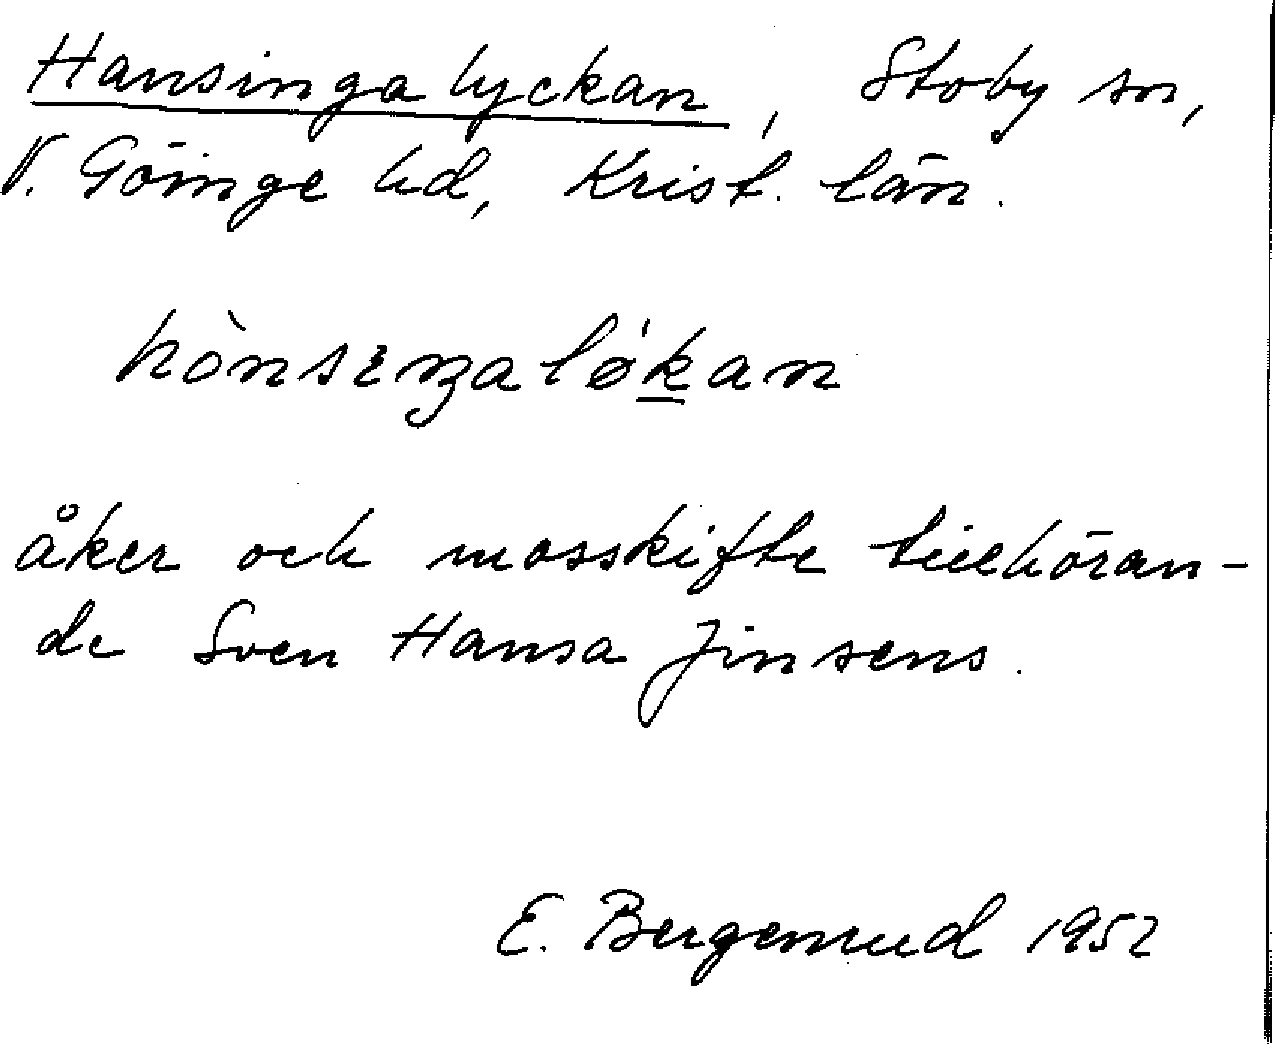 Hansingalyckan, Stoby sn,
V. Göinge hd, Krist. län.
hònsɪŋaløḱan
åker och mosskifte tillhöran-
de Sven Hansa Jinsens.
E. Bergenrud 1952